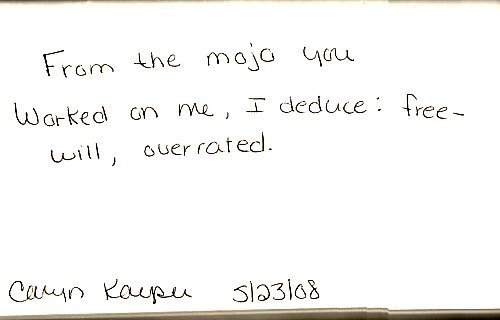 From the mojo you
Worked on me, I deduce: free-
will, overrated.
Caryn 5/23/08